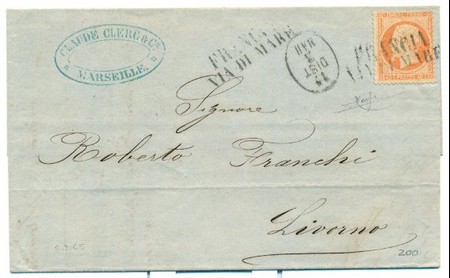 CLAUDE CLERC & Cie
MARSEILLE.
FRANCIA
VIA DI MARE
DIST
MAR
FRANCIA
VIA DI MARE
Signore
Roberto Franchi
Livorno
200